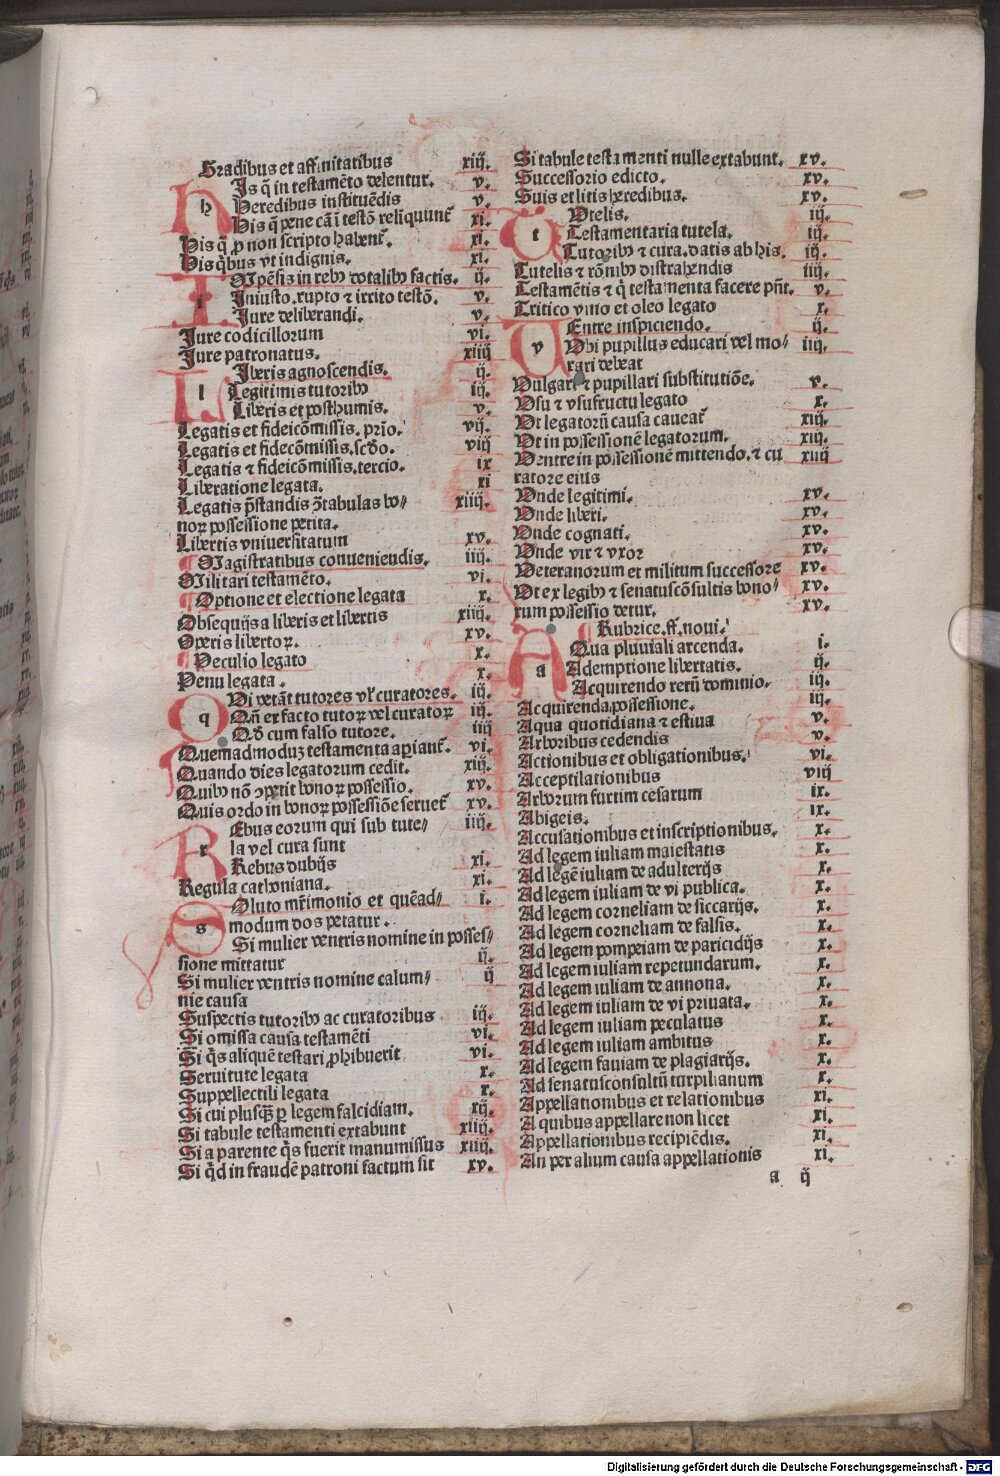 Gradibus et affinitatibus xiij.
h Is q̄ in testamēto delentur. v.
Heredibus instituēdis v.
His q̄ pene cā ī testō reliquunt᷑ xi.
His q̄ ꝓ non scripto habent᷑. xi.
His qͥbus vt indignis. xi.
i Mpēsis in rebꝰ dotalibꝰ factis. ij.
Iniusto.rupto ⁊ irrito testō. v.
Iure deliberandi. v.
Iure codicillorum vi.
Iure patronatus. xiiij
l Iberis agnoscendis. ij.
Legitimis tutoribꝰ iij.
Liberis et posthumis. v.
Legatis et fideicōmissis.prīo. vij.
Legatis et fidecōmissis.scd̄o. viij
Legatis ⁊ fideicōmissis.tercio. ix
Liberatione legata. xi
Legatis p̄standis ꝯtabulas bo⸗ xiiij.
noꝝ possessione petita.
Libertis vniuersitatum xv.
¶ Magistratibus conueniendis. iiij.
Militari testamēto. vi.
¶ Optione et electione legata x.
Obsequijs a liberis et libertis xiiij.
Operis libertoꝝ. xv.
¶ Peculio legato x.
Penu legata. x.
q Vi petāt tutores vl̓ curatores. iij.
Qn̄ ex facto tutoꝝ vel curatoꝝ iij.
Qd̓ cum falso tutore. iiij
Quemadmoduꝫ testamenta aꝑiant᷑. vi.
Quando dies legatorum cedit. xiij.
Quibꝰ nō ꝯpetit bonoꝝ possessio. xv.
Quis ordo in bonoꝝ possessiōe seruet᷑ xv.
r Ebus eorum qui sub tute⸗ iiij.
la vel cura sunt
Rebus dubijs xi.
Regula cathoniana. xi.
s Oluto mr̄imonio et quēad⸗ i.
modum dos petatur.
Si mulier ventris nomine in posses⸗
sione mittatur ij.
Si mulier ventris nomine calum⸗ ij
nie causa
Suspectis tutoribꝰ ac curatoribus iij.
Si omissa causa testamēti vi.
Si qͥs aliquē testari ꝓhibuerit vi.
Seruitute legata x.
Suppellectili legata x.
Si cui plusqͣꝫ ꝑ legem falcidiam. xij.
Si tabule testamenti extabunt xiiij.
Si a parente qͥs fuerit manumissus xiiij.
Si qͥd in fraudē patroni factum sit xv.
Si tabule testamenti nulle extabunt. xv.
Successorio edicto. xv.
Suis et litis heredibus. xv.
t Vtelis. iij.
Testamentaria tutela. iij.
Tutoribꝰ ⁊ cura.datis ab his. iij.
Tutelis ⁊ rōnibꝰ distrahendis iiij.
Testamētis ⁊ qͥ testamenta facere pn̄t. v.
Tritico vino et oleo legato x.
v Entre inspiciendo. ij.
Vbi pupillus educari vel mo⸗ iij.
rari debeat
Vulgari ⁊ pupillari substitutiōe. v.
Vsu ⁊ vsufructu legato x.
Vt legatorū causa caueat᷑ xiij.
Vt in possessionē legatorum. xiij.
Ventre in possessionē mittendo.⁊ cu xiiij
ratore eius
Vnde legitimi. xv.
Vnde liberi. xv.
Vnde cognati. xv.
Vnde vir ⁊ vxor xv.
Veteranorum et militum successore xv.
Vt ex legibꝰ ⁊ senatuscōsultis bono⸗ xv.
rum possessio detur. xv.
¶ Rubrice.ff.noui.
a Qua pluuiali arcenda. i.
Ademptione libertatis. ij.
Acquirendo rerū dominio. iij.
Acquirenda possessione. iij.
Aqua quotidiana ⁊ estiua v.
Arboribus cedendis v.
Actionibus et obligationibus. vi.
Acceptilationibus viij
Arborum furtim cesarum ix.
Abigeis. ix.
Accusationibus et inscriptionibus. x.
Ad legem iuliam maiestatis x.
Ad legē iuliam de adulterijs x.
Ad legem iuliam de vi publica. x.
Ad legem corneliam de siccarijs. x.
Ad legem corneliam de falsis. x.
Ad legem pompeiam de paricidijs x.
Ad legem iuliam repetundarum. x.
Ad legem iuliam de annona. x.
Ad legem iuliam de vi priuata. x.
Ad legem iuliam peculatus x.
Ad legem iuliam ambitus x.
Ad legem fauiam de plagiarijs. x.
Ad senatusconsultū turpilianum x.
Appellationibus et relationibus xi.
A quibus appellare non licet xi.
Appellationibus recipiēdis. xi.
An per alium causa appellationis xi.
a ij
Digitalisierung gefördert durch die Deutsche Forschungsgemeinschaft - DFG